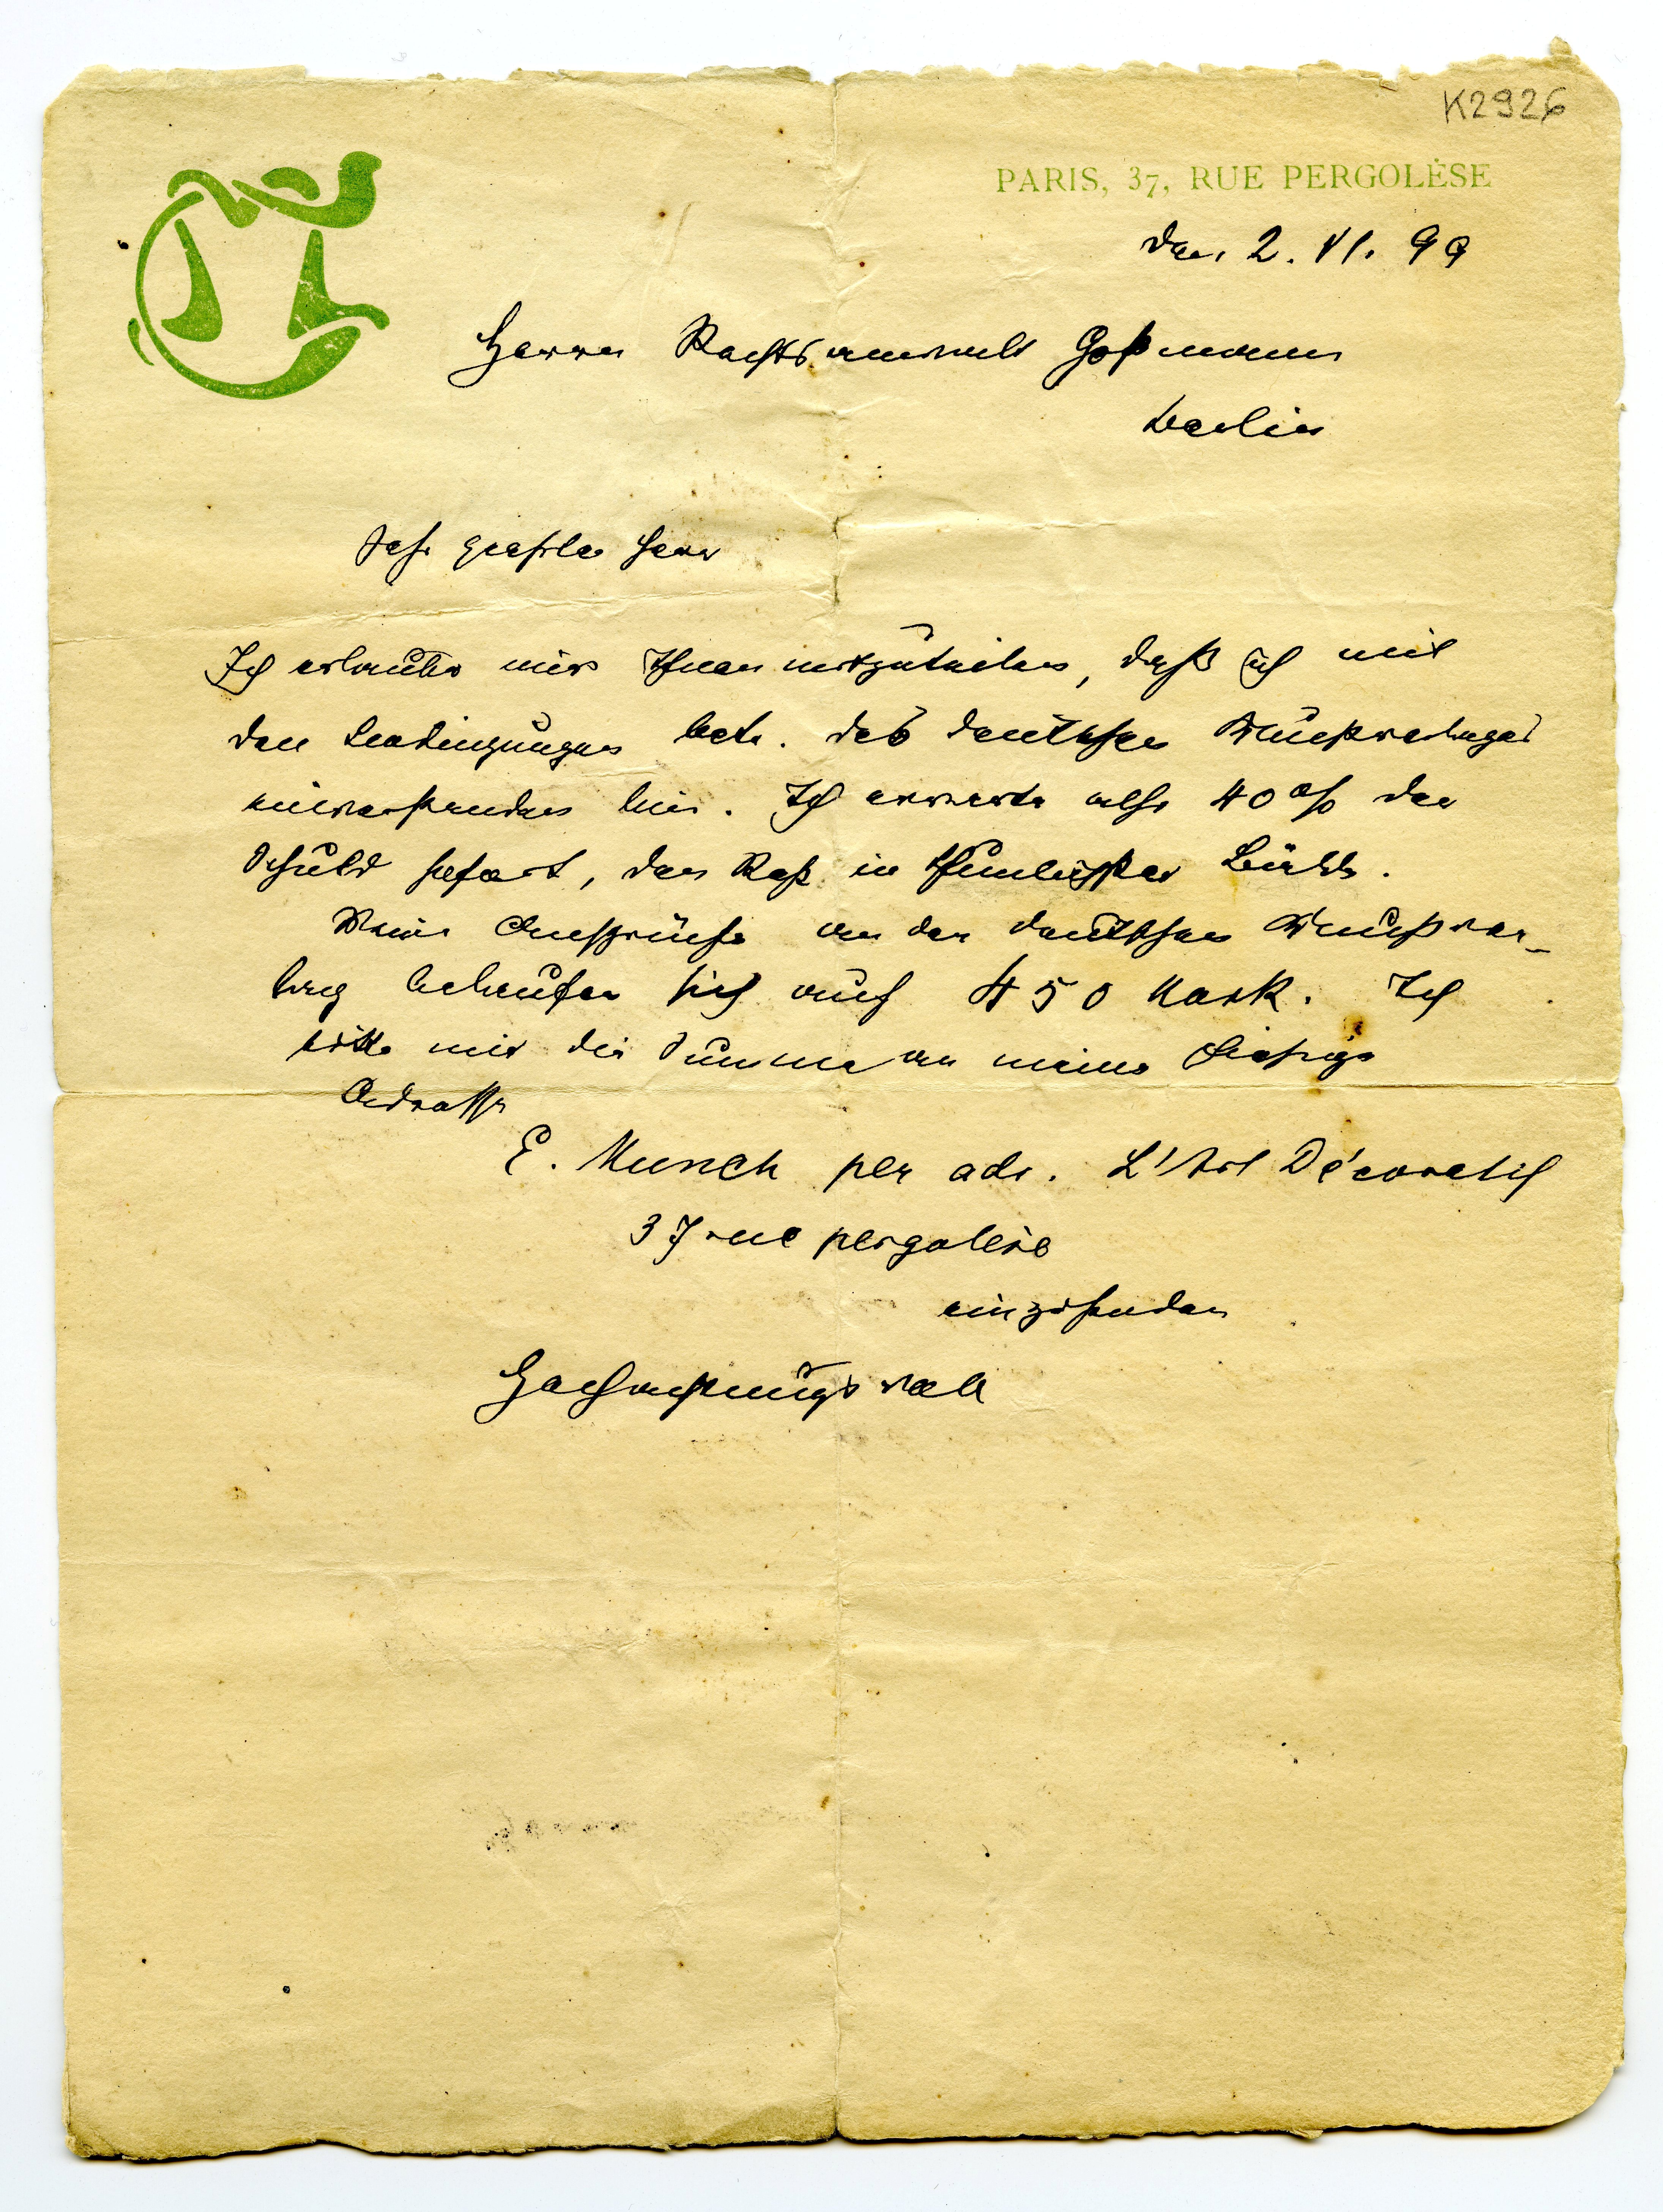 K2926
PARIS, 37, RUE PERGOLÈSE
den 2. VI. 99
Herrn Rechtsanwalt Goßmann
Berlin
Sehr geehrter Herr
Ich erlaube mir Ihnen mitzuteilen, daß ich mit
den Bedingungen betr. des deutschen Kunstverlages
einverstanden bin. Ich erwarte also 40 % der
Schuld sofort, den Rest in
Meine Ansprüche an den deutschen Kunstver-
lag belaufen sich auf 450 Mark. Ich
bitte mir die Summe an meine hiesige
Adresse
E. Munch per adr. L'Art Décoratif
37 rue pergolese
einzusenden
Hochachtungsvoll